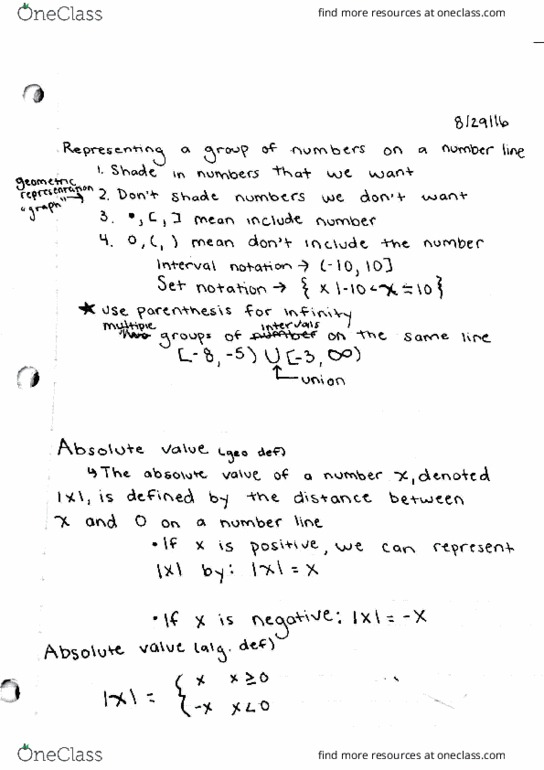 OneClass
find more resources at oneclass.com
8/29/16
Representing a group of numbers on a number line
1. Shade in numbers that we want
geometric
representation
"graph"
2. Don't shade numbers we don't want
3. •, [, ] mean include number
4. o, (, ) mean don't include the number
Interval notation → (-10, 10]
Set notation → { x | -10 < x ≤ 10 }
★ use parenthesis for infinity
multiple intervals
groups of number on the same line
[-8, -5) ∪ [-3, ∞)
union
Absolute value (geo def)
↳ The absolute value of a number x, denoted
|x|, is defined by the distance between
x and 0 on a number line
• If x is positive, we can represent
|x| by: |x| = x
• If x is negative: |x| = -x
Absolute value (alg. def)
|x| = { x x ≥ 0
-x x < 0
OneClass
find more resources at oneclass.com